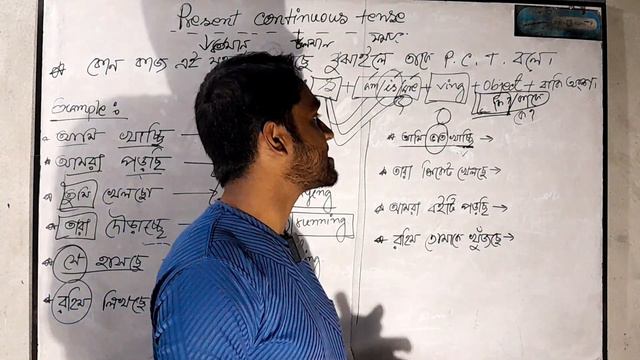 Present continuous tense
বর্তমান চলমান সময়
* কোন কাজ এই বুঝাইলে তাকে P.C.T. বলে।
S + am/is/are + Ving + Object + বাকি অংশ।
কি?/কাকে
কে?
Example:
* আমি খাচ্ছি
* আমরা পড়ছি
* তুমি খেলছো
* তারা দৌড়াচ্ছে running
* সে হাসছে
* রহিম লিখছে
* আমি ভাত খাচ্ছি →
* তারা ক্রিকেট খেলছে →
* আমরা বইটি পড়ছি →
* রহিম তোমাকে খুঁজছে →